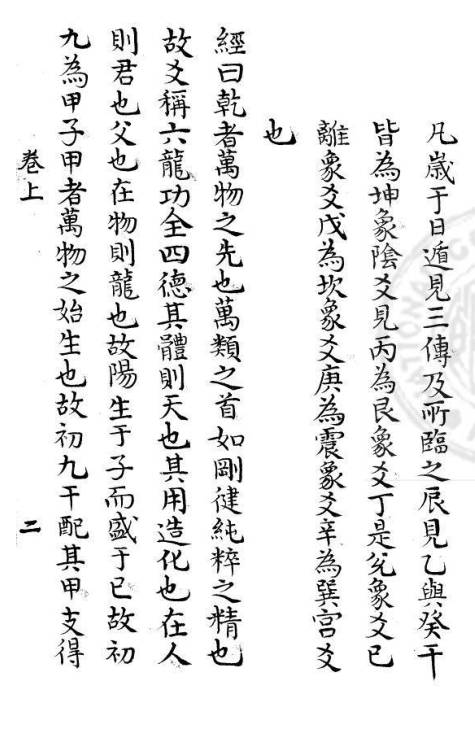 凡歲于日遁見三傳及所臨之辰見乙與癸干
皆為坤象陰爻見丙為艮象爻丁是兌象爻已
離象爻戊為坎象爻庚為震象爻辛為巽宫爻
也
經曰乾者萬物之先也萬類之首如剛健純粹之精也
故爻稱六龍功全四德其體則天也其用造化也在人
則君也父也在物則龍也故陽生于子而盛于已故初
九為甲子甲者萬物之始生也故初九干配其甲支得
卷上
二